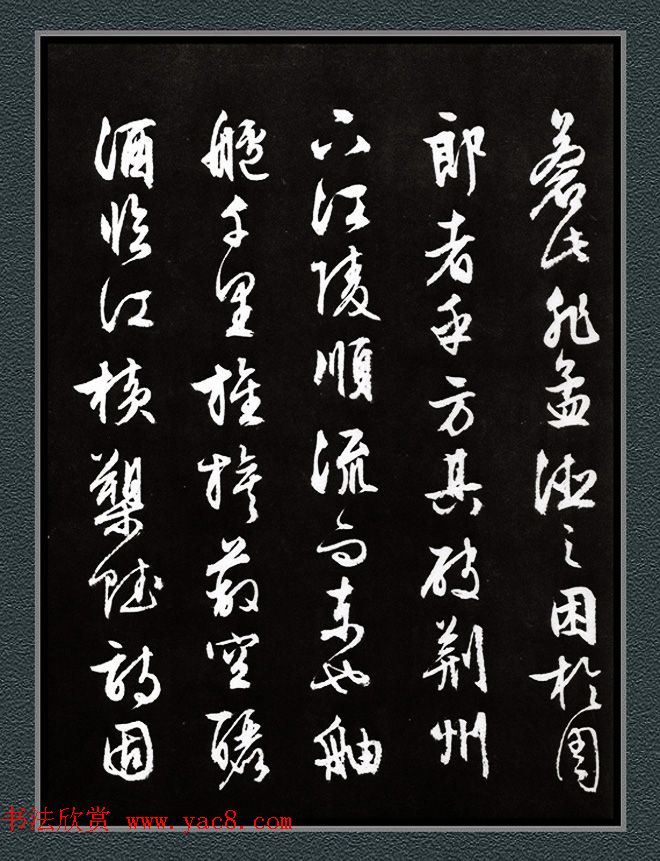 蒼此非孟德之困於周
郎者乎方其破荊州
下江陵順流而東也舳
艫千里旌旗蔽空釃
酒臨江橫槊賦詩固
书法欣赏 www.yac8.com